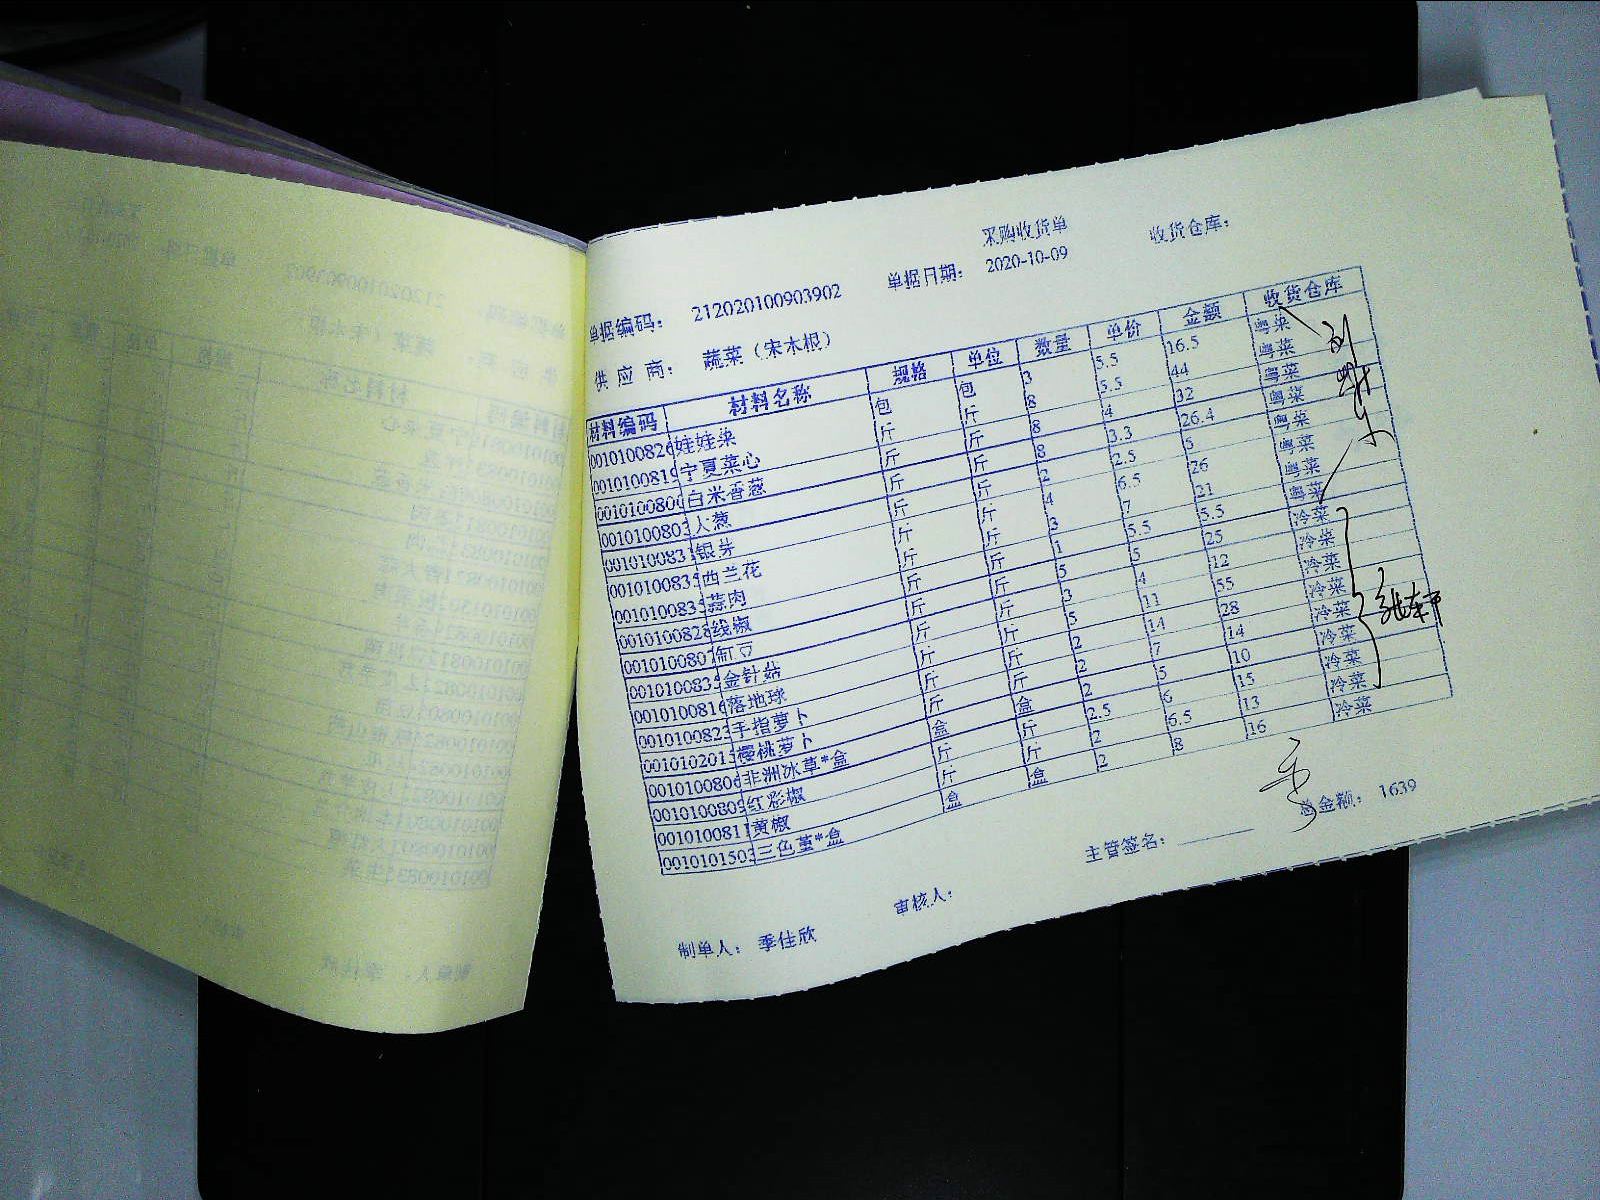 采购收货单
单据编码： 212020100903902 单据日期： 2020-10-09 收货仓库：
供 应 商： 蔬菜（宋木根）
材料编码 材料名称 规格 单位 数量 单价 金额 收货仓库
0010100826 娃娃菜 包 包 3 5.5 16.5 粤菜
0010100819 宁夏菜心 斤 斤 8 5.5 44 粤菜
001010080 白米香葱 斤 斤 8 4 32 粤菜
0010100803 大葱 斤 斤 8 3.3 26.4 粤菜
001010083 银芽 斤 斤 2 2.5 5 粤菜
001010083 西兰花 斤 斤 4 6.5 26 粤菜
001010083 蒜肉 斤 斤 3 7 21 粤菜
001010082 线椒 斤 斤 1 5.5 5.5 粤菜
001010080 缸豆 斤 斤 5 5 25 冷菜
001010083 金针菇 斤 斤 3 4 12 冷菜
0010100816 落地球 斤 斤 5 11 55 冷菜
001010082 手指萝卜 斤 斤 2 14 28 冷菜
001010201 樱桃萝卜 斤 斤 2 7 14 冷菜
001010080 非洲冰草*盒 盒 盒 2 5 10 冷菜
001010080 红彩椒 斤 斤 2.5 6 15 冷菜
001010081 黄椒 斤 斤 2 6.5 13 冷菜
0010101503 三色堇*盒 盒 盒 2 8 16 冷菜
主管签名： 总金额： 1639
制单人： 季佳欣 审核人：